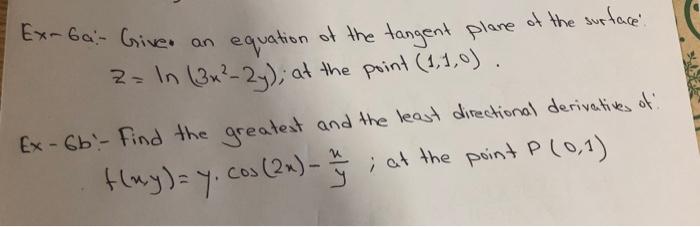 Ex-6a:- Give. an equation of the tangent plane of the surface:
z = ln (3x²-2y); at the point (1,1,0).
Ex-6b:- Find the greatest and the least directional derivatives of:
f(x,y) = y. cos(2x) - x/y ; at the point P(0,1)